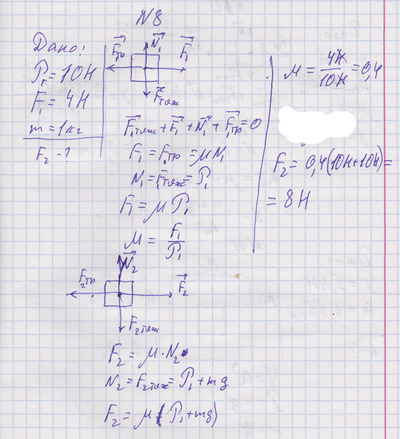 N8
Дано:
P₁=10Н
F₁=4Н
m=1кг
F₂-?
N₁
Fтр
F₁
Fтяж
F₁тяж+F₁+N₁+F₁тр=0
F₁=F₁тр=μN₁
N₁=F₁тяж=P₁
F₁=μP₁
μ=F₁/P₁
N₂
F₂тр
F₂
F₂тяж
F₂=μ·N₂
N₂=F₂тяж=P₁+mg
F₂=μ(P₁+mg)
μ=4Н/10Н=0,4
F₂=0,4(10Н+10Н)=
=8Н